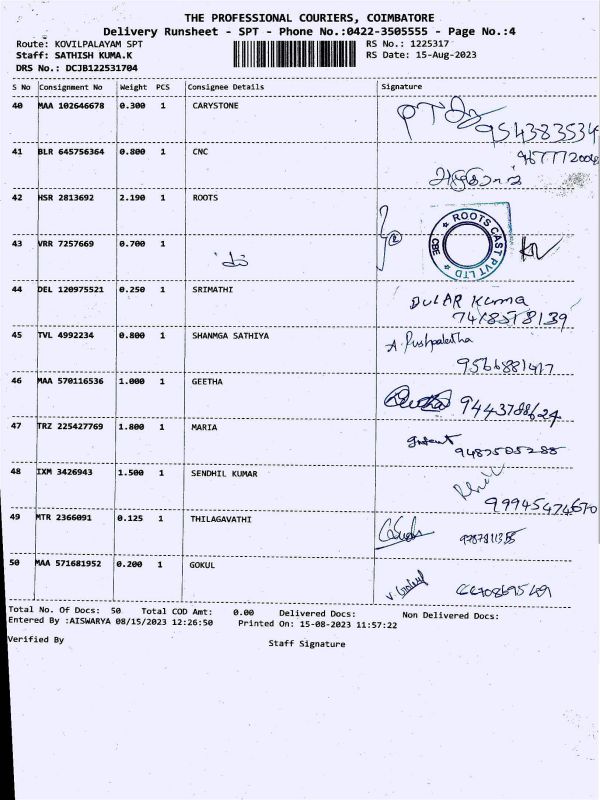 THE PROFESSIONAL COURIERS, COIMBATORE
Delivery Runsheet - SPT - Phone No.:0422-3505555 - Page No.:4
Route: KOVILPALAYAM SPT RS No.: 1225317
Staff: SATHISH KUMA.K RS Date: 15-Aug-2023
DRS No.: DCJB122531704
S No Consignment No Weight PCS Consignee Details Signature
40 MAA 102646678 0.300 1 CARYSTONE
954383534
41 BLR 645756364 0.800 1 CNC
42 HSR 2813692 2.190 1 ROOTS
ROOTS CAST PVT LTD CBE
2
43 VRR 7257669 0.700 1
44 DEL 120975521 0.250 1 SRIMATHI
DULAR Kuma
45 TVL 4992234 0.800 1 SHANMGA SATHIYA
A. Pushpalatha
9566881417
46 MAA 570116536 1.000 1 GEETHA
9443788624
47 TRZ 225427769 1.800 1 MARIA
9487505288
48 IXM 3426943 1.500 1 SENDHIL KUMAR
99945474670
49 MTR 2366091 0.125 1 THILAGAVATHI
50 MAA 571681952 0.200 1 GOKUL
Total No. Of Docs: 50 Total COD Amt: 0.00 Delivered Docs: Non Delivered Docs:
Entered By :AISWARYA 08/15/2023 12:26:50 Printed On: 15-08-2023 11:57:22
Verified By Staff Signature